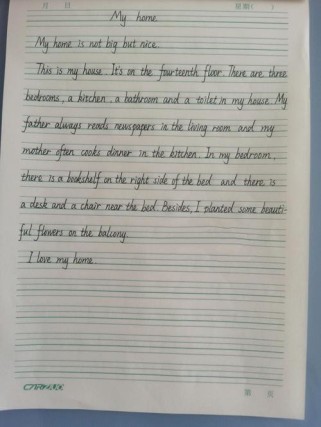 月 日 星期( )
My home
My home is not big but nice.
This is my house. It's on the fourteenth floor. There are three
bedrooms, a kitchen, a bathroom and a toilet in my house. My
father always reads newspapers in the living room and my
mother often cooks dinner in the kitchen. In my bedroom,
there is a bookshelf on the right side of the bed and there is
a desk and a chair near the bed. Besides, I planted some beauti-
ful flowers on the balcony.
I love my home.
第 页